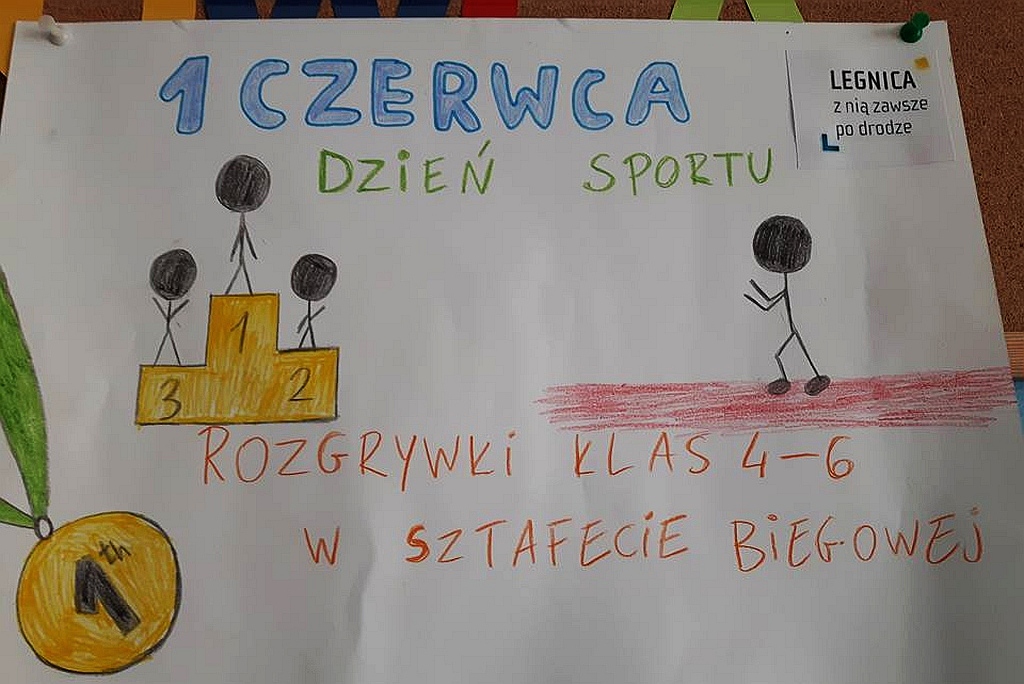 1 CZERWCA
LEGNICA
z nią zawsze
po drodze
DZIEŃ SPORTU
1
3
2
ROZGRYWKi KLAS 4-6
W SZTAFECiE BiEGOWEJ
1th